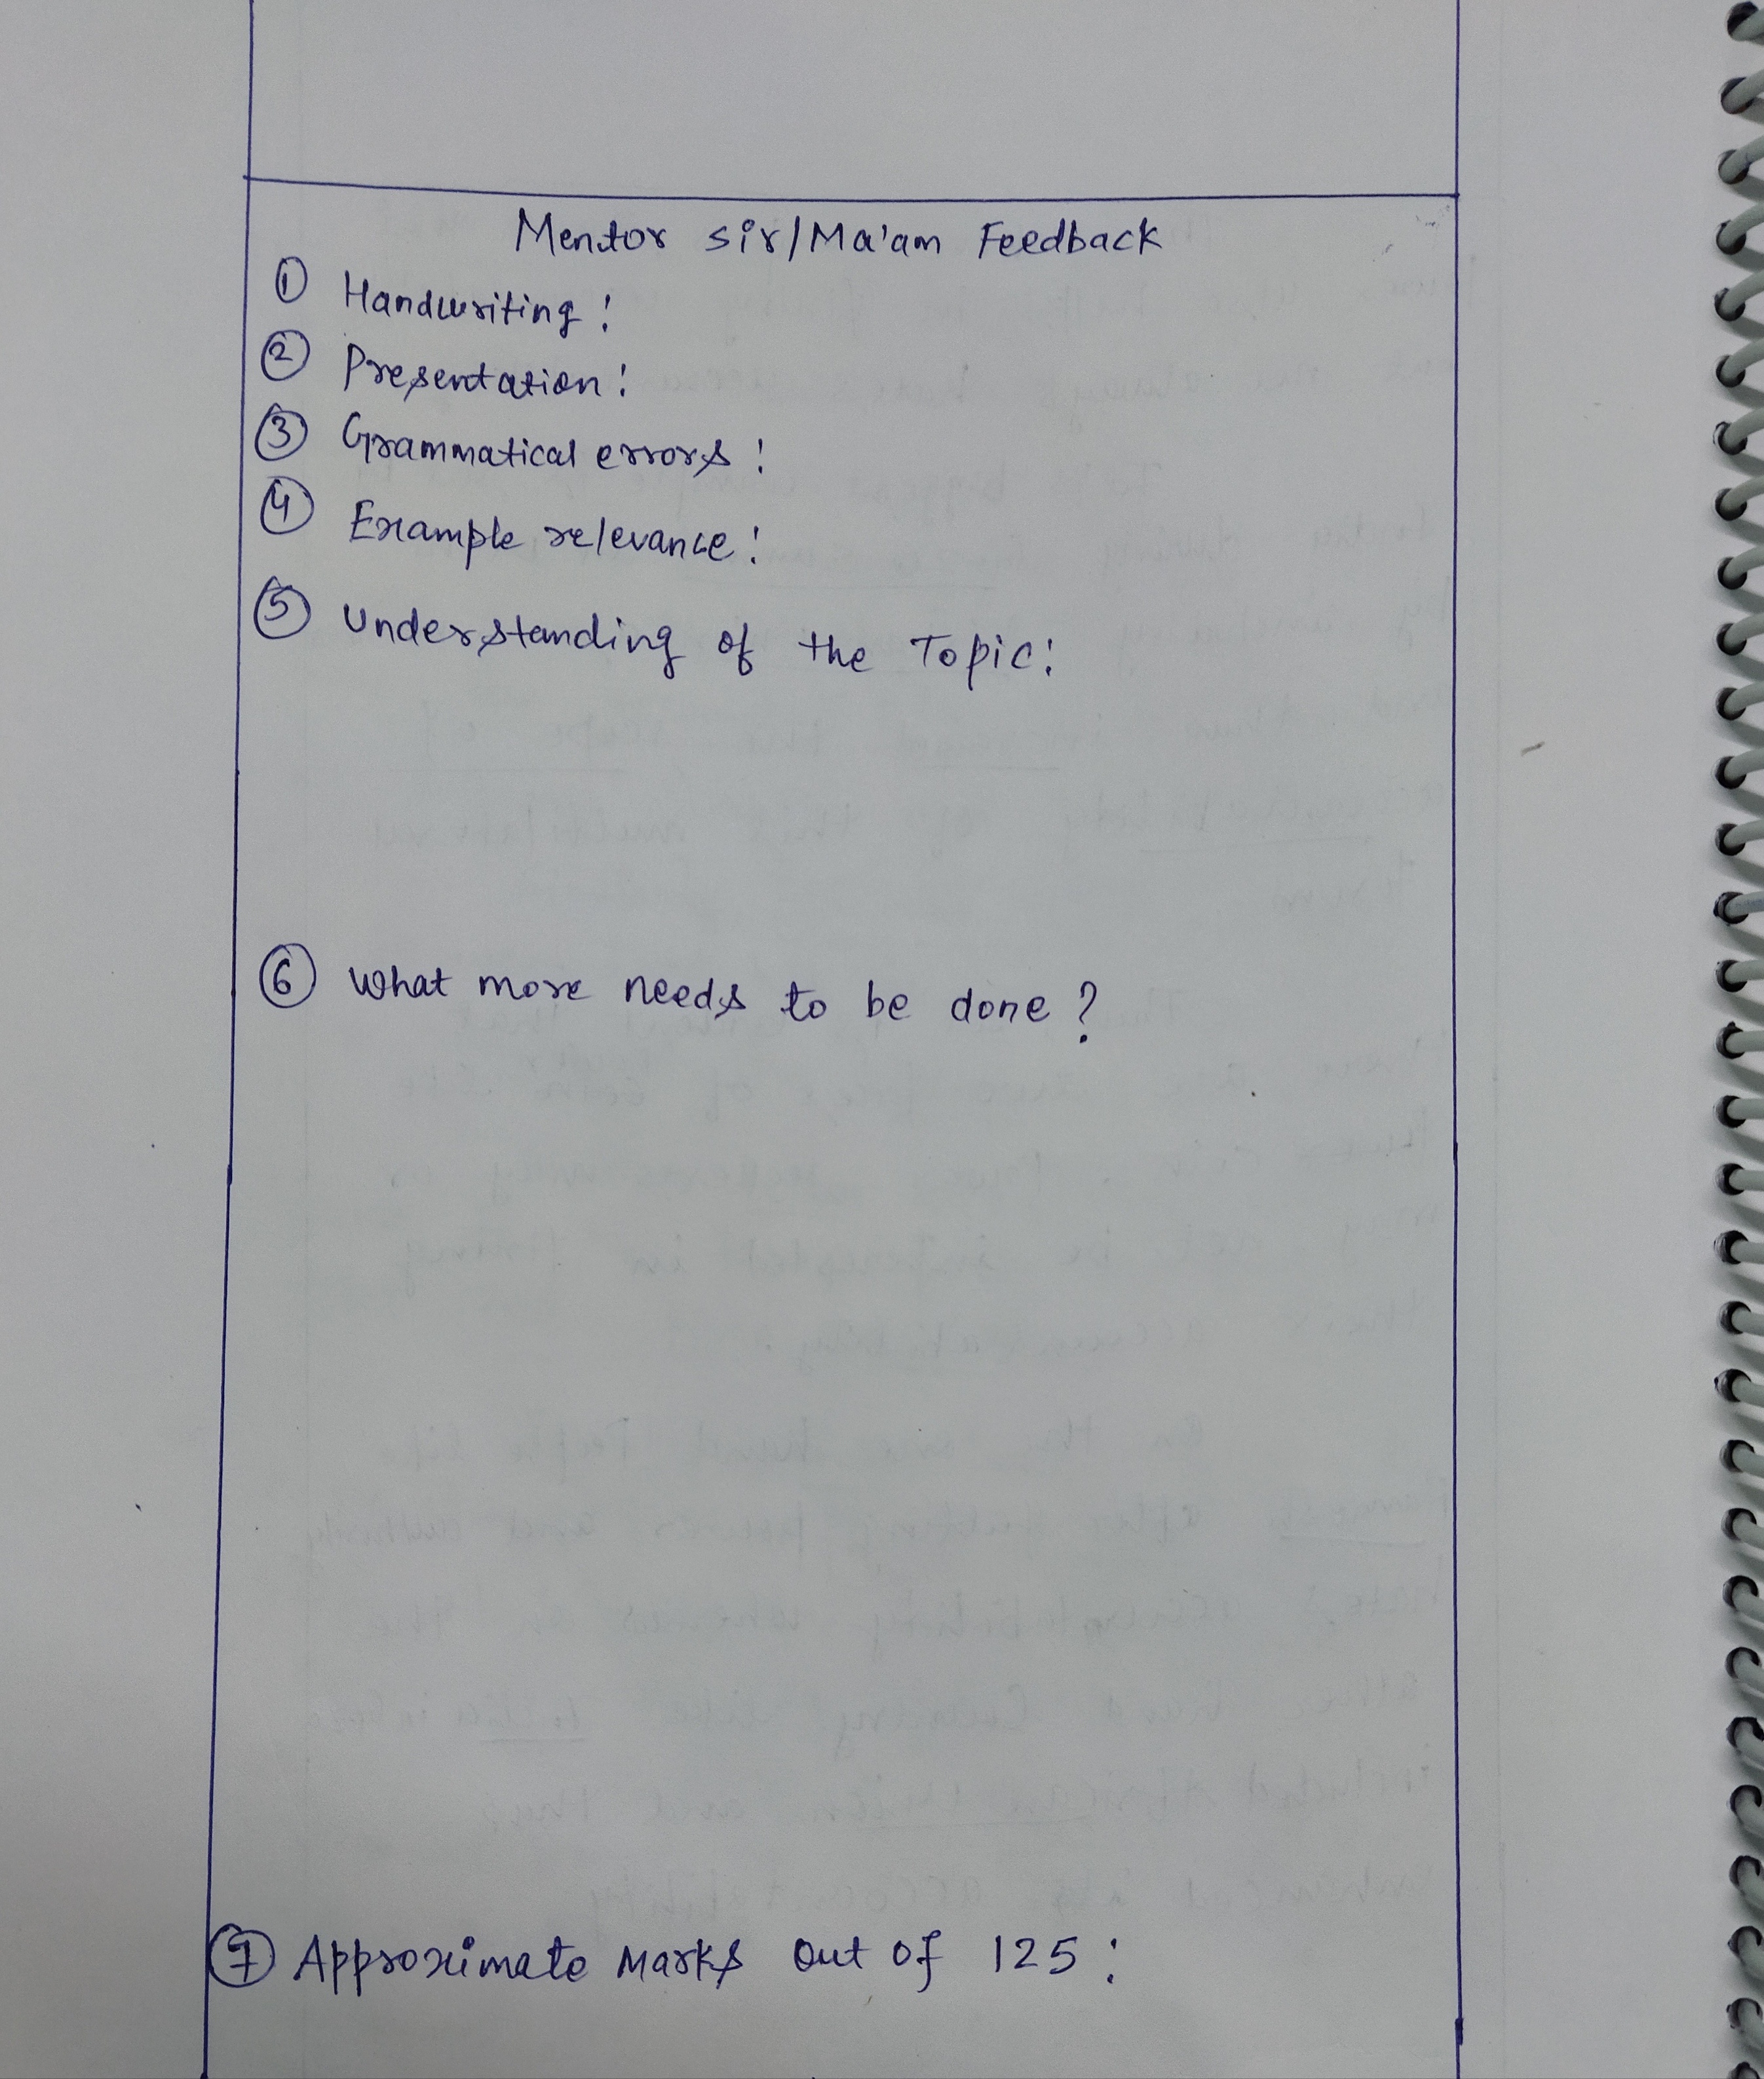 Mentor sir/Ma'am Feedback
① Handwriting:
② Presentation:
③ Grammatical errors:
④ Example relevance:
⑤ Understanding of the Topic:
⑥ What more needs to be done?
⑦ Approximate Marks out of 125: